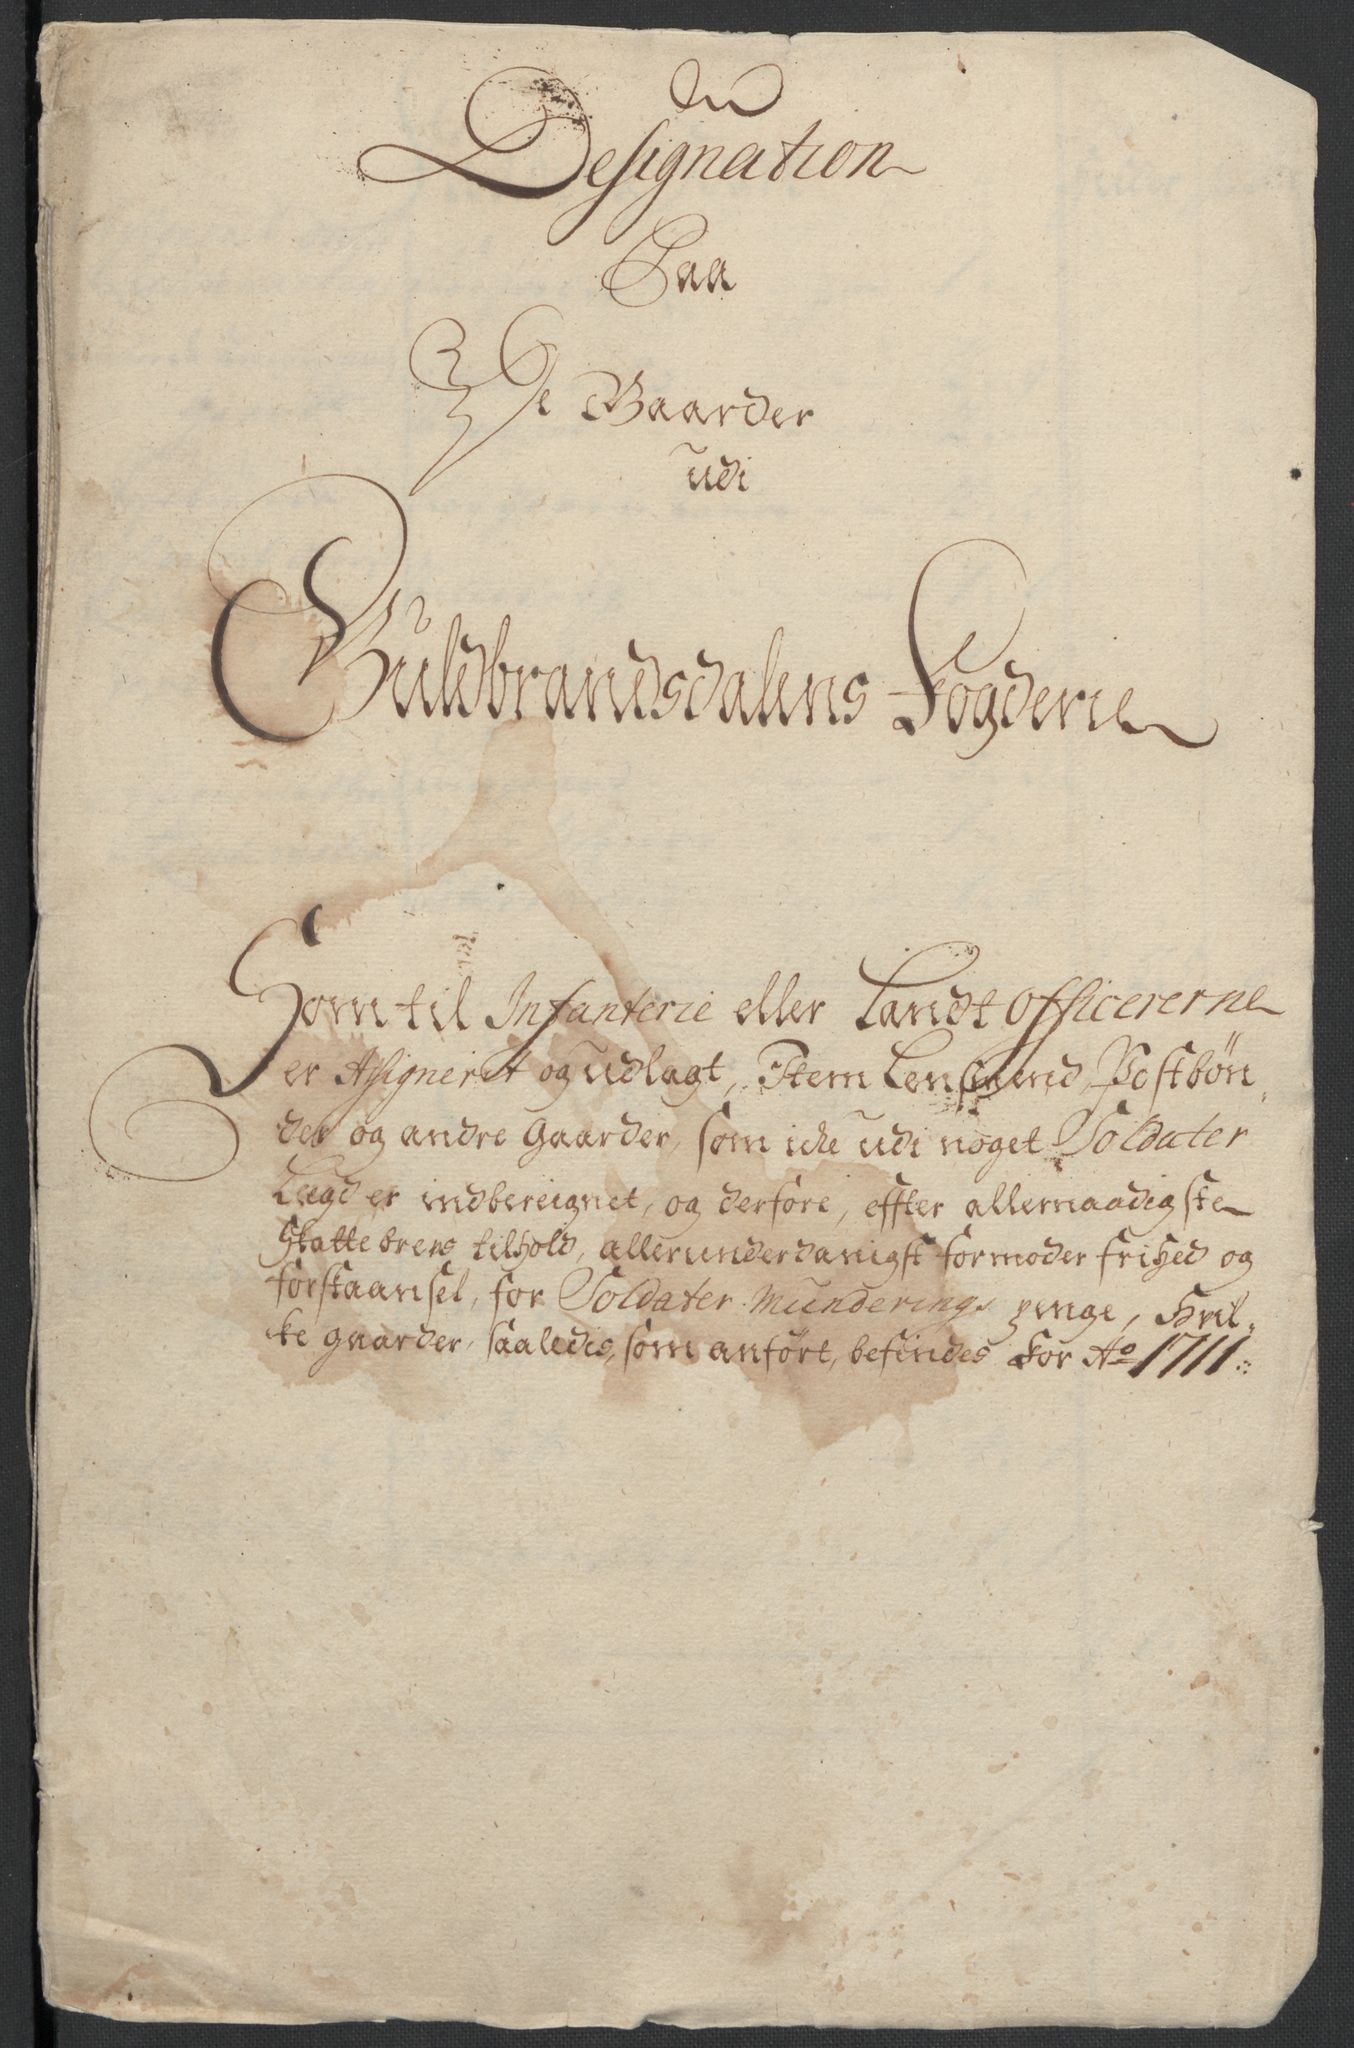 Designation
Paa
De Gaarder
udi
Guldbrandsdalens Fogderie
Som til Infanterie eller Landt Officererne
er Assigneret og udlagt, Item Lensmend, Postbøn,
der og andre Gaarder, som icke udi noget Soldater
Lægd er indbereignet, og derfore, effter allernaadigste
Skatte brevs tilhold, allerunderdanigst formoder frihed og
forskaansel, for Soldater Munderings penge, Hvil,
ke gaarder, saaledis, som anført, befindes For Ao 1711